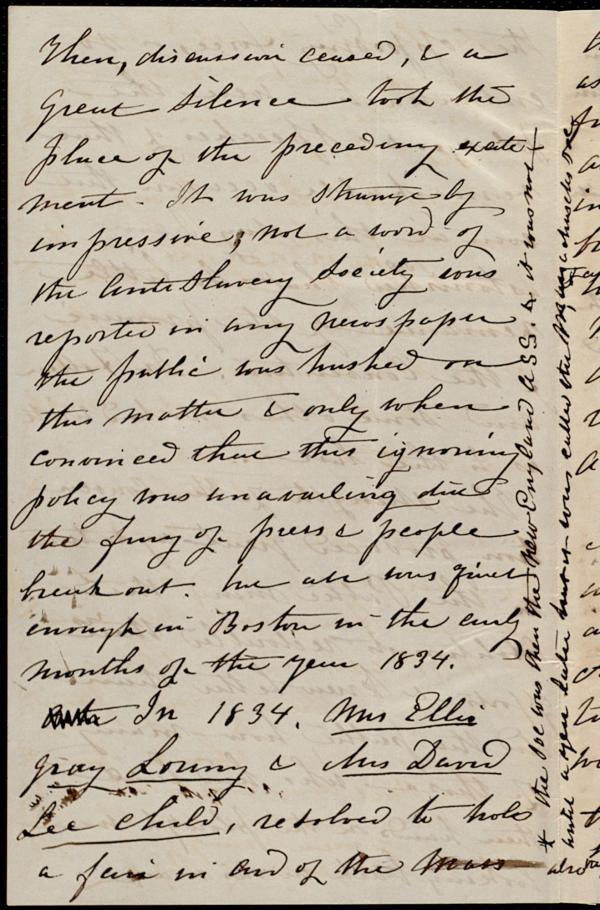 Then, discussion ceased, & a
great silence took the
place of the preceding excite-
ment. It was strangely
impressive; not a word of
the Anti Slavery Society was
reported in any newspaper
the public was hushed on
this matter & only when
convinced that this ignoring
policy was unavailing did
the fury of press & people
break out. but all was quiet
enough in Boston in the early
months of the year 1834.
In 1834. Mrs Ellis
gray Loring & Mrs David
Lee Child, resolved to hold
a fair in aid of the Mass
* the Soc was then the New England A SS. & it was not
until a year later that it was called the Massachusetts Soc
also